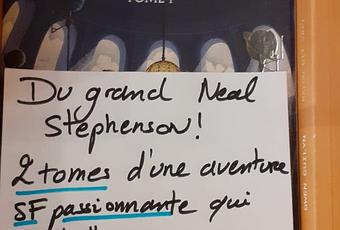 TOME 1
Du grand Neal
Stephenson!
2 tomes d'une aventure
SF passionnante qui
OWEN